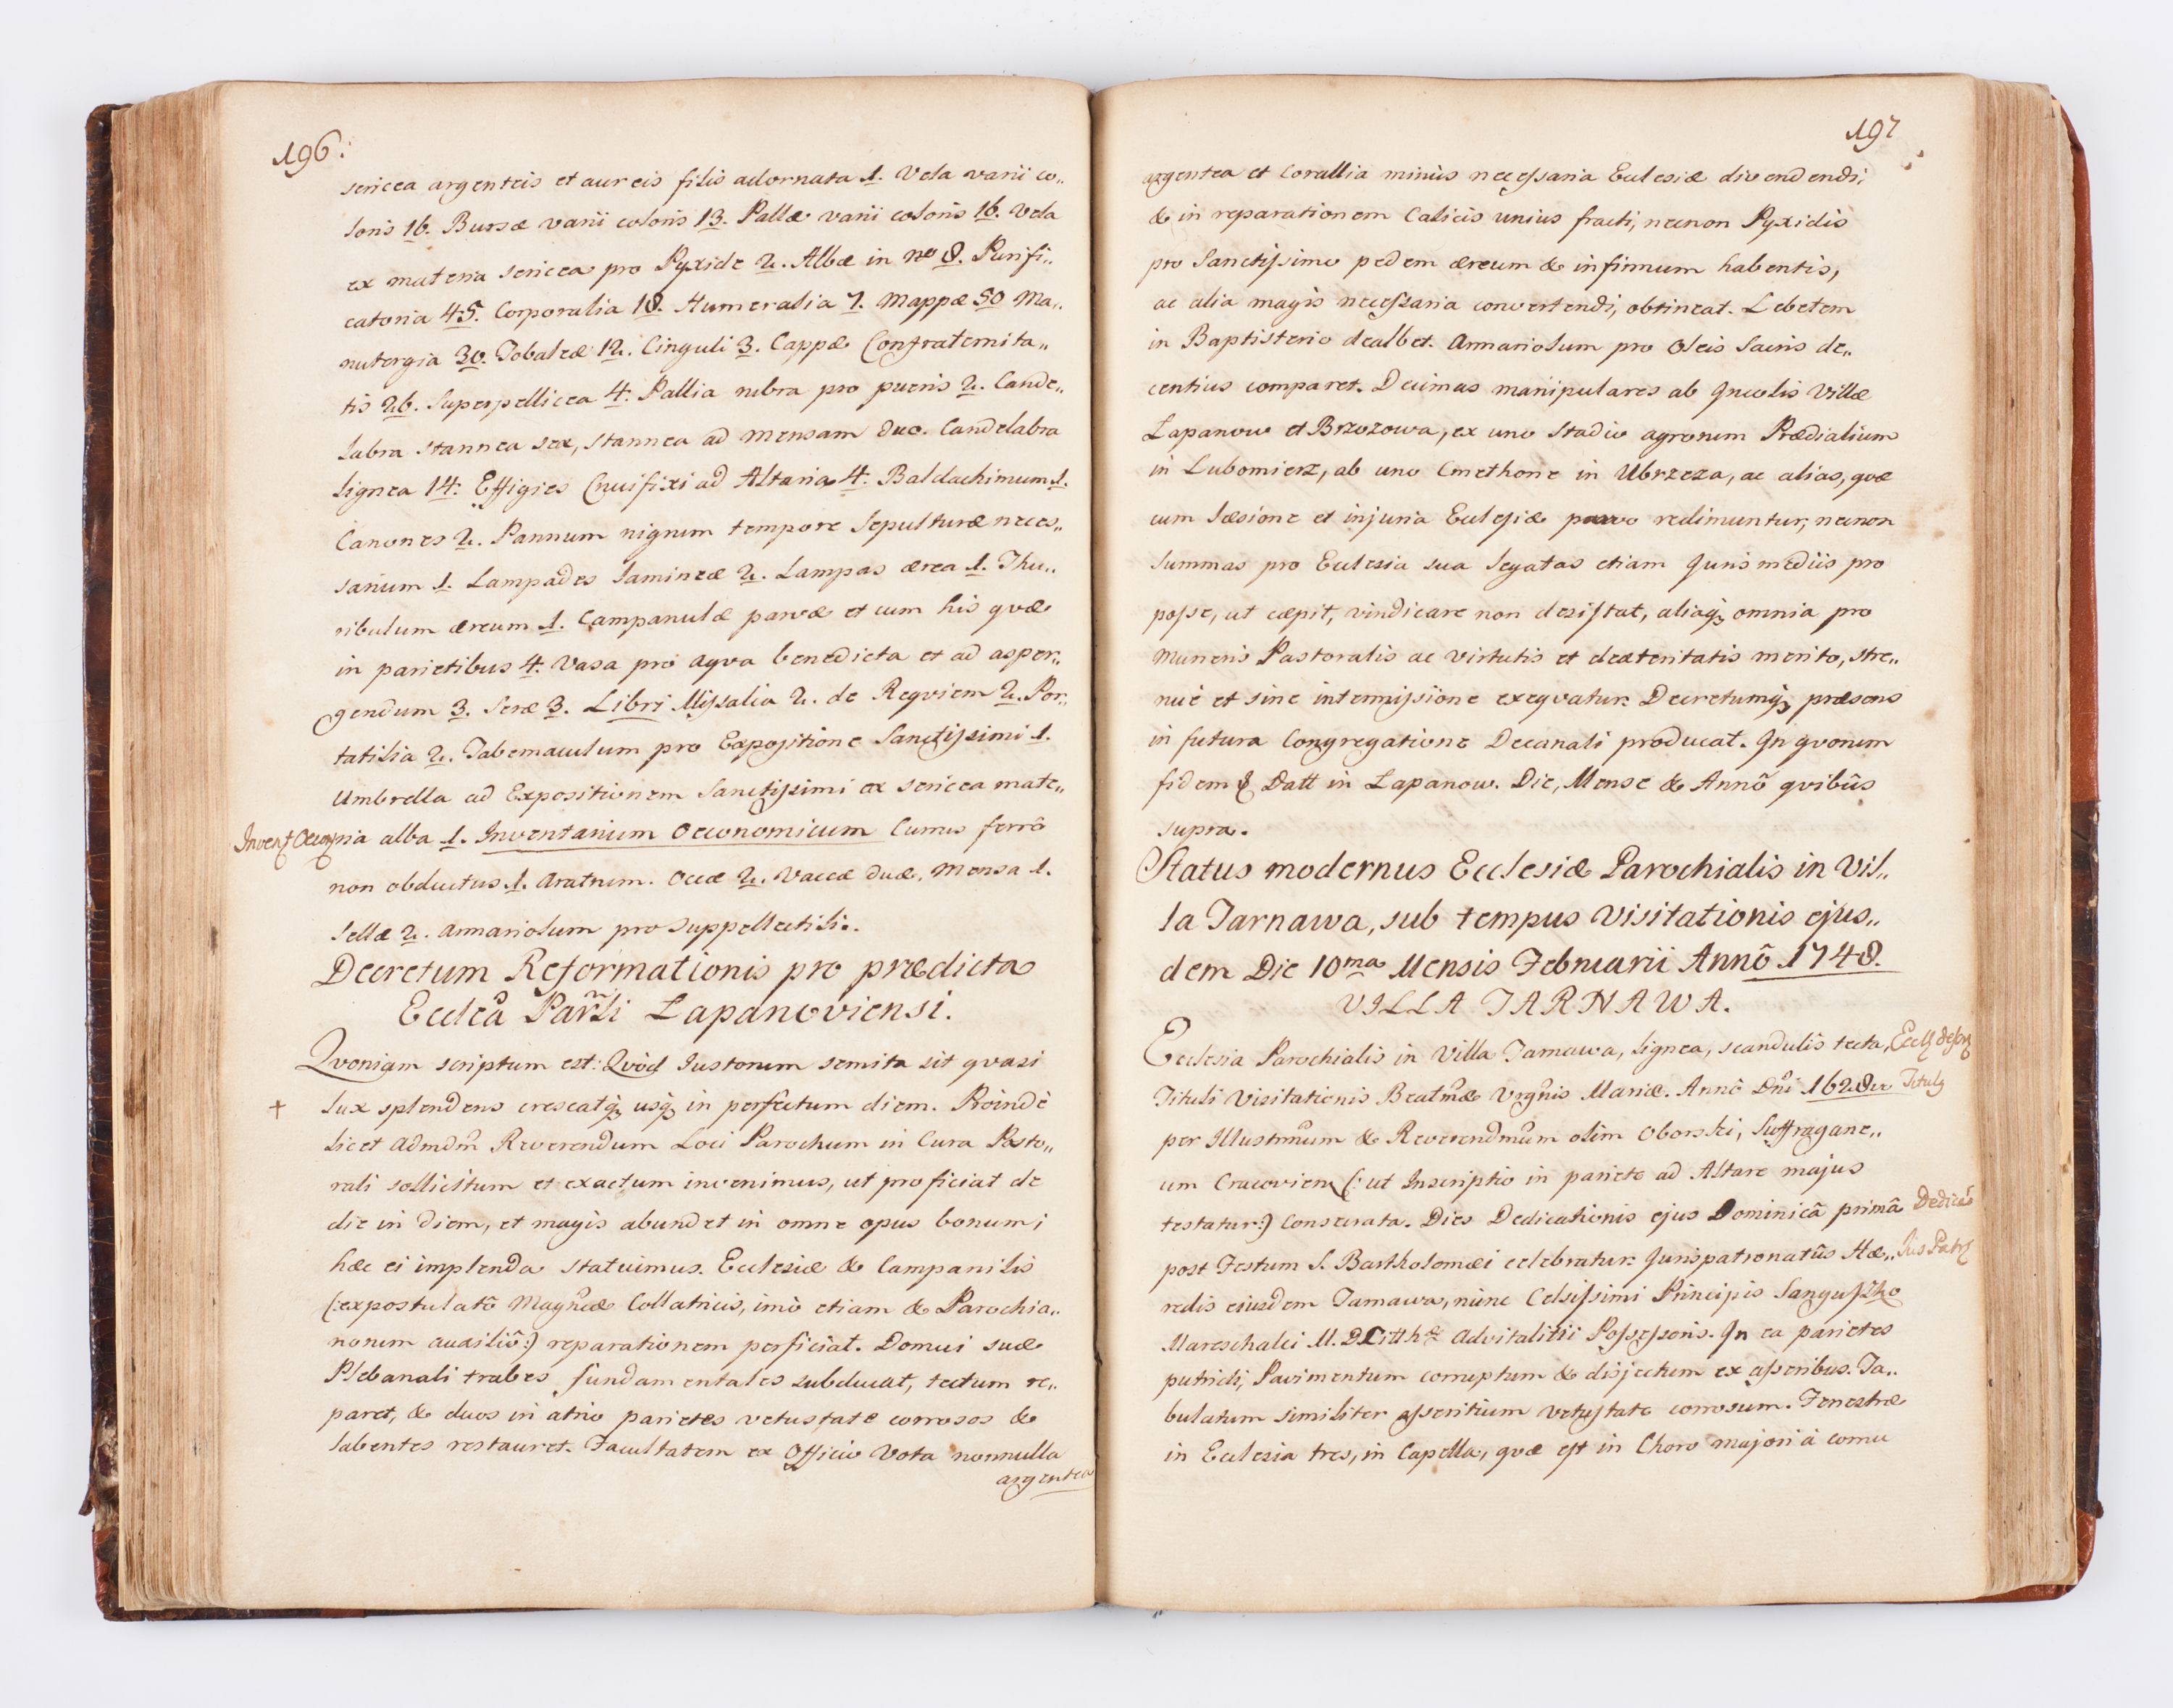 196:
sericea argenteis et aureis filis adornata 1. Vela varii co„
loris 16. Bursæ varii coloris 13. Pallæ varii coloris 16. Vela
ex materia sericea pro Pyxide 2. Albæ in nro 8. Purifi„
catoria 45. Corporalia 18. Humeralia 7. Mappæ 50 Ma„
nutergia 30. Tobaleæ 12. Cinguli 3. Cappæ Confraternita„
tis 26. Superpellicea 4. Pallia rubra pro pueris 2. Cande„
labra stannea sex, stannea ad mensam duo. Candelabra
lignea 14: Effigies Crucifixi ad Altaria 4. Baldachimum 1.
Canones 2. Pannum nigrum tempore Sepulturæ neces„
sarium 1. Lampades lamineæ 2. Lampas ærea 1. Thu„
ribulum æreum 1. Campanulæ parvæ et cum his qvæ
in parietibus 4. Vasa pro aqva benedicta et ad asper„
gendum 3. Seræ 3. Libri Missalia 2. de Reqviem 2. Por„
tatilia 2. Tabernaculum pro Expositione Sanctissimi 1.
Umbrella ad Expositionem Sanctissimi ex sericea mate„
Invent Oecon
ria alba 1. Inventarium Oeconomicum Currus ferrô
non obductus 1. Aratrum. Occæ 2. Vaccæ duæ, Mensa 1.
Sellæ 2. Armariolum pro Suppellectili.
Decretum Reformationis pro prædicta
Ecclea Parli Lapanoviensi.
Qvoniam scriptum est: Qvòd Justorum semita sit qvasi
+ lux splendens crescatq; usq; in perfectum diem. Proindè
licet Admdm Reverendum Loci Parochum in Cura Pasto„
rali sollicitum et exactum invenimus, ut proficiat de
die in diem, et magis abundet in omne opus bonum;
hæc ei implenda statuimus. Ecclesiæ & Campanilis
(:expostulatô Magncæ Collatricis, imò etiam & Parochia„
norum auxiliô:) reparationem perficiat. Domui suæ
Plebanali trabes fundamentales subducat, tectum re„
paret, & duos in atrio parietes vetustate corrosos &
labentes restauret. Facultatem ex Officio Vota nonnulla
argentea
197
argentea et Corallia minùs necessaria Ecclesiæ divendendi,
& in reparationem Calicis unius fracti, necnon Pyxidis
pro Sanctissimo pedem æreum & infirmum habentis,
ac alia magis necessaria convertendi, obtineat. Lebetem
in Baptisterio dealbet. Armariolum pro Oleis Sacris de„
centius comparet. Decimas manipulares ab Incolis Villæ
Lapanow et Brzozowa, ex uno stadio agrorum Prædialium
in Lubomierz, ab uno Cmethone in Ubrzeza, ac alias, qvæ
cum læsione et injuria Ecclesiæ parvo redimuntur, necnon
Summas pro Ecclesia sua legatas etiam Juris mediis pro
posse, ut cæpit, vindicare non desistat, aliaq; omnia pro
Muneris Pastoralis ac virtutis et dexteritatis merito, stre„
nuè et sine intermissione exeqvatur. Decretumq; præsens
in futura Congregatione Decanali producat. In qvorum
fidem & Datt in Lapanow. Die, Mense & Annô qvibûs
supra.
Status modernus Ecclesiæ Parochialis in Vil„
la Tarnawa, sub tempus Visitationis ejus„
dem Die 10ma Mensis Februarii Annô 1748.
VILLA TARNAWA.
Ecclesia Parochialis in Villa Tarnawa, lignea, scandulis tecta,
Tituli Visitationis Beatmæ Vrgnis Mariæ. Annô Dni
Titulg
per Illustrmum & Reverendmum olim Oborski, Suffragane„
um Cracovien (: ut Inscriptio in pariete ad Altare majus
testatur:) Consecrata. Dies Dedicationis ejus Dominicâ primâ
Dedicao
post Festum S. Bartholomæi celebratur. Jurispatronatûs Hæ„
Jus Patr
redis eiusdem Tarnawa, nunc Celsissimi Principis Sangußzko
Mareschalci M. D Litthæ Advitalitii Possessoris. In ea parietes
putridi, Pavimentum corruptum & disjectum ex asseribus. Ta„
bulatum similiter asseritium vetustate corrosum. Fenestræ
in Ecclesia tres, in Capella, qvæ est in Choro majori à cornu